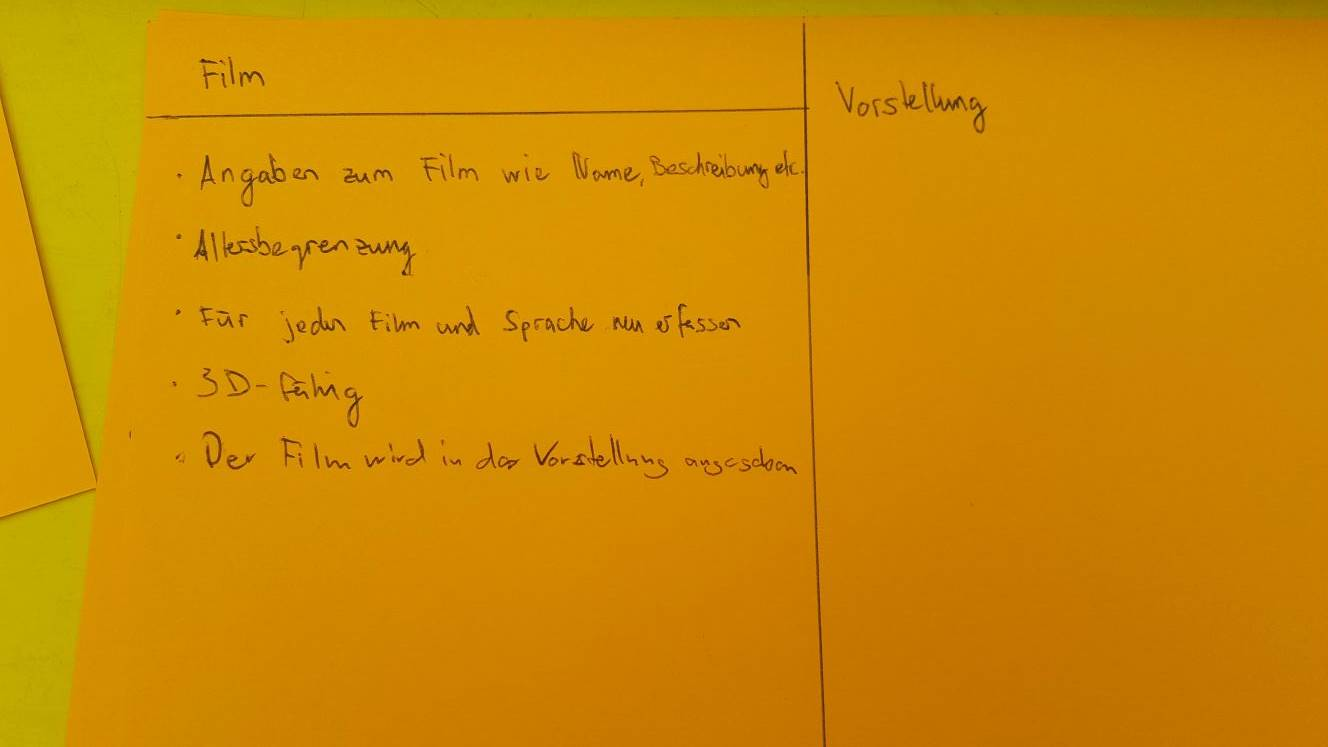 Film
Vorstellung
· Angaben zum Film wie Name, Beschreibung etc.
· Altersbegrenzung
· Für jeden Film und Sprache neu erfassen
· 3D-fähig
· Der Film wird in der Vorstellung angegeben